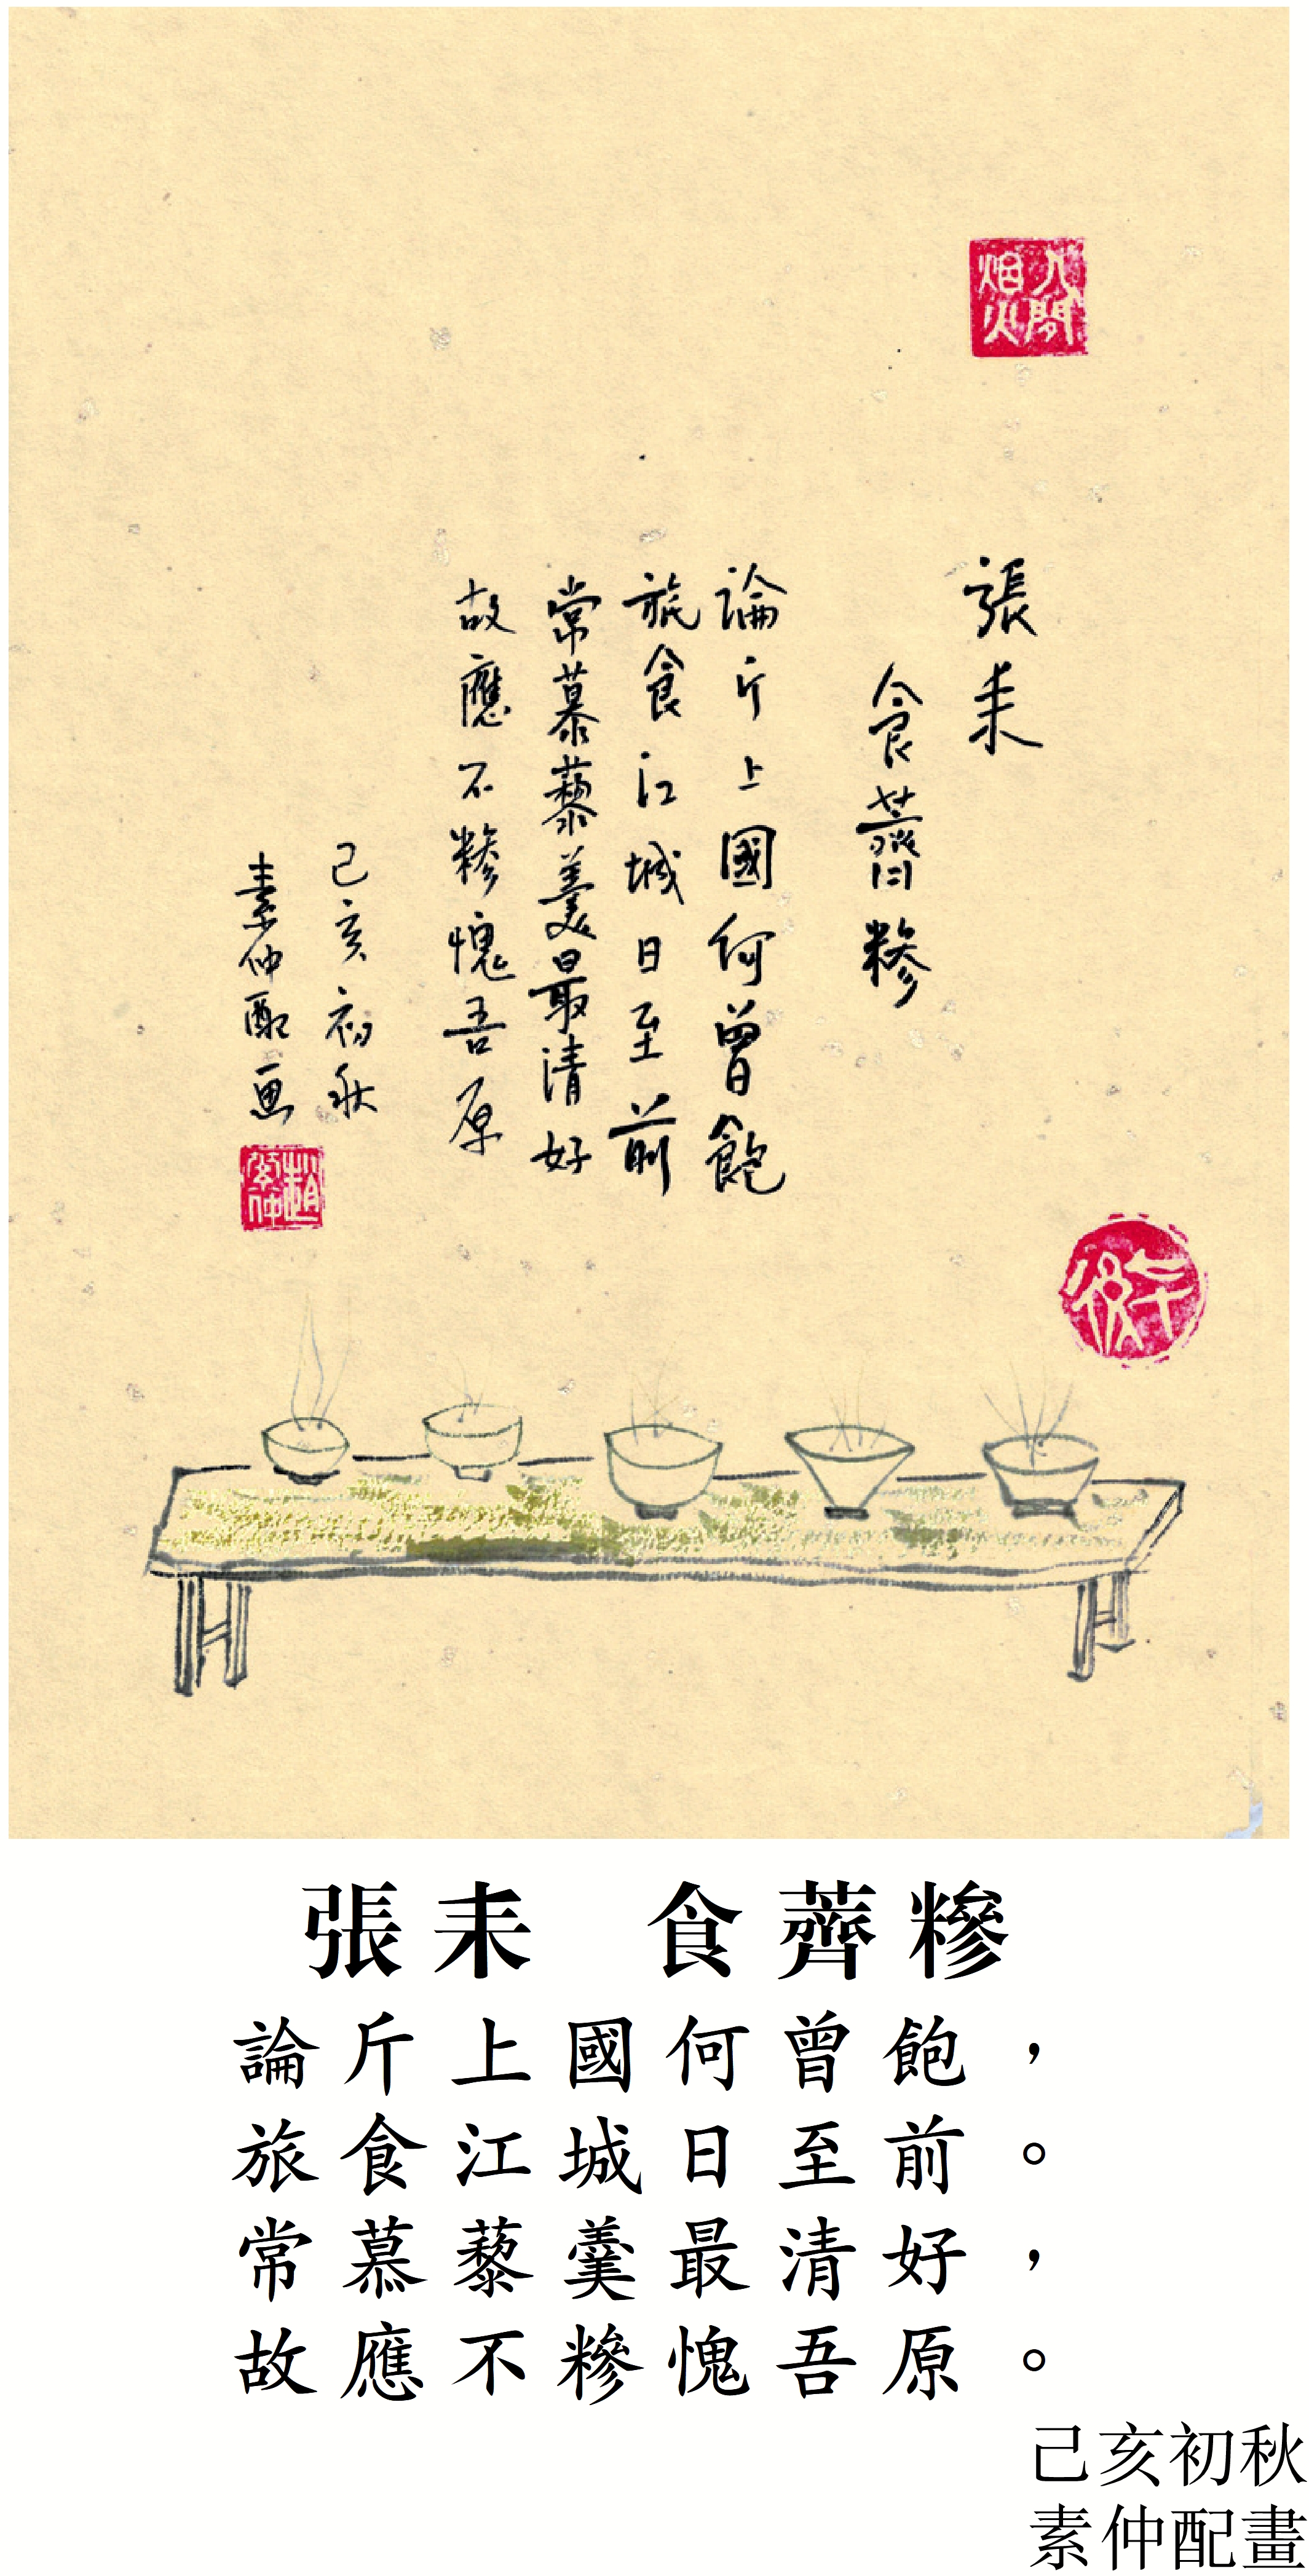 人間
烟火
張耒
食薺糝
論斤上國何曾飽
旅食江城日至前
常慕藜羹最清好
故應不糝愧吾原
己亥初秋
素仲配画
趙
素仲
張耒 食薺糝
論斤上國何曾飽，
旅食江城日至前。
常慕藜羹最清好，
故應不糝愧吾原。
己亥初秋
素仲配畫